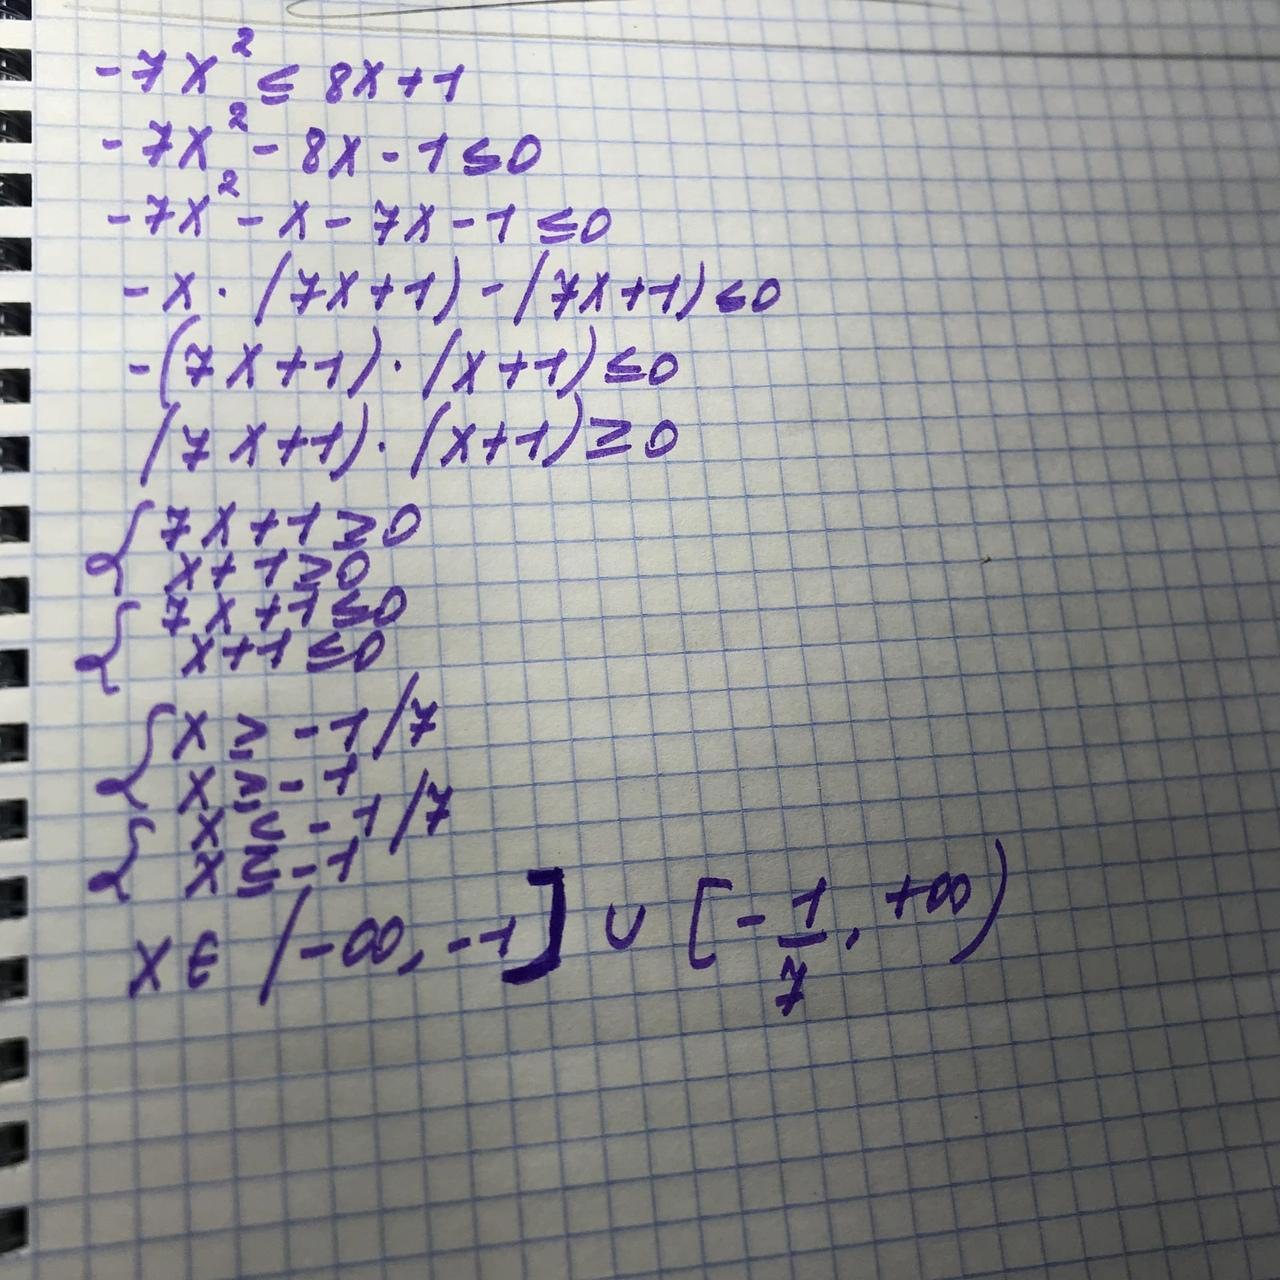 -7x² ≤ 8x+1
-7x² - 8x - 1 ≤ 0
-7x² - x - 7x - 1 ≤ 0
-x · (7x+1) - (7x+1) ≤ 0
-(7x+1) · (x+1) ≤ 0
(7x+1) · (x+1) ≥ 0
{ 7x+1 ≥ 0
x+1 ≥ 0
{ 7x+1 ≤ 0
x+1 ≤ 0
{ x ≥ -1/7
x ≥ -1
{ x ≤ -1/7
x ≤ -1
x ∈ (-∞, -1] ∪ [-1/7, +∞)